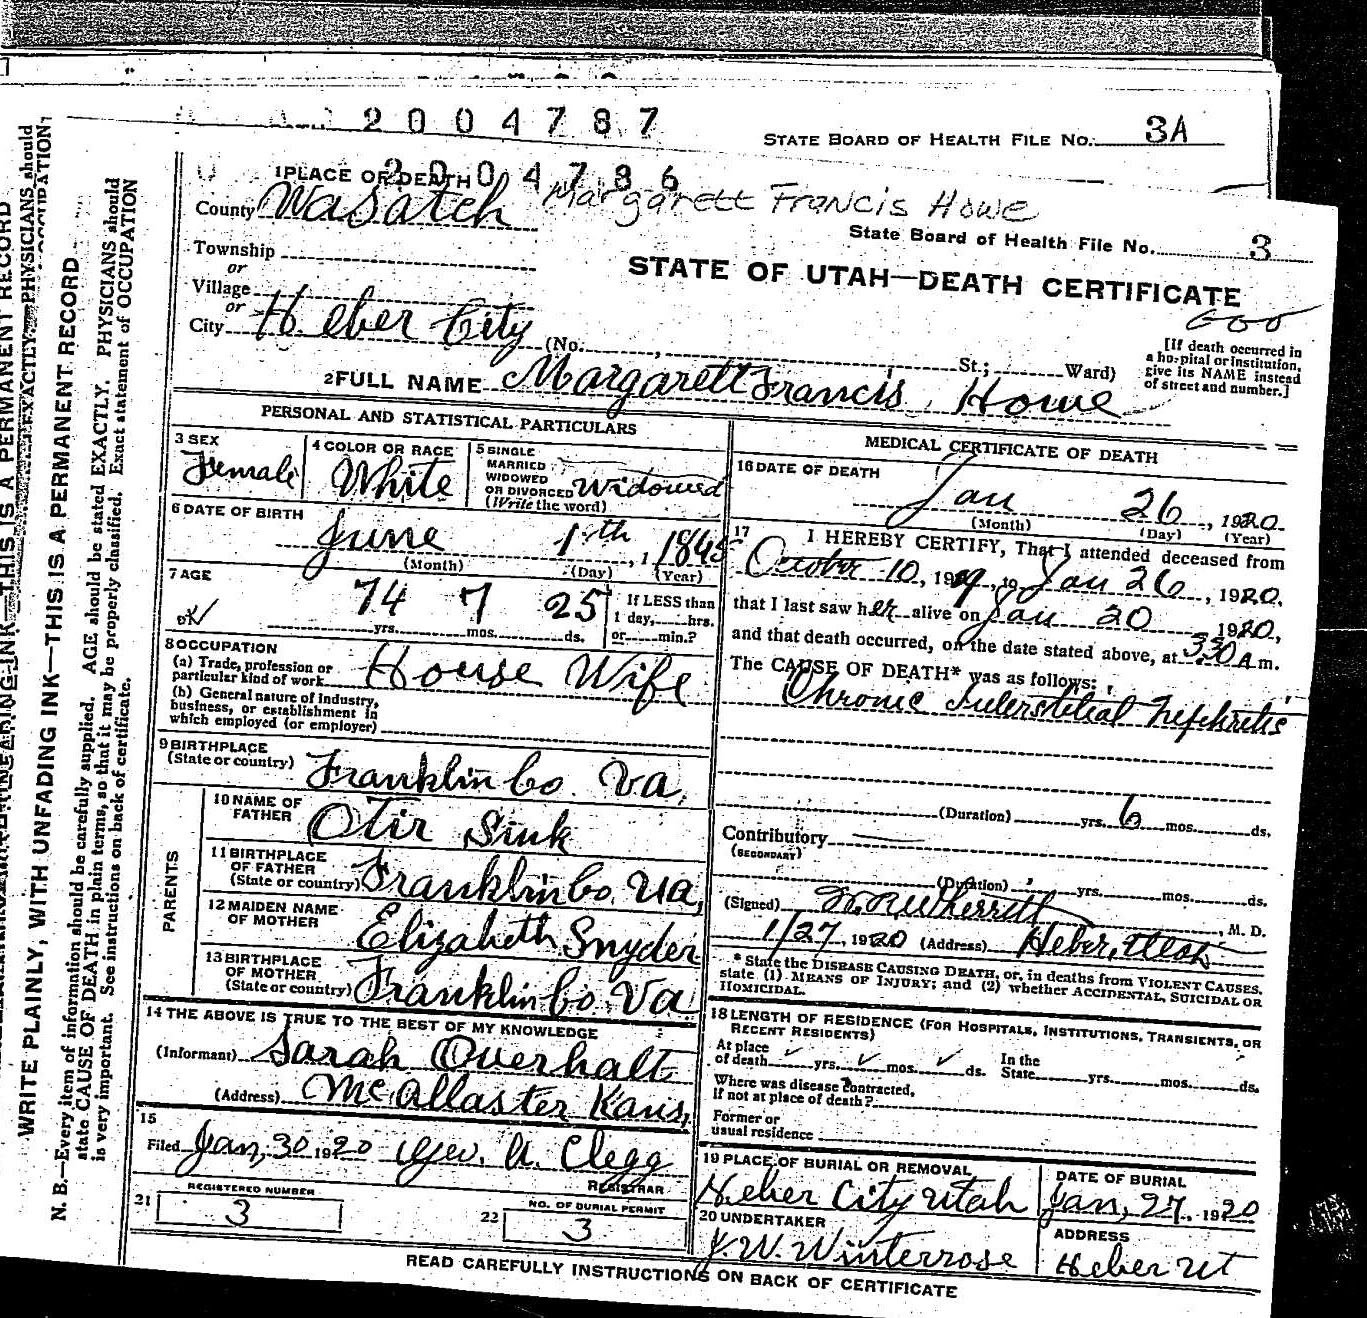 2004787
STATE BOARD OF HEALTH FILE No. 3A
2004786
1 PLACE OF DEATH
County Wasatch
Margarett Francis Howe
State Board of Health File No. 3
Township
or
Village
STATE OF UTAH—DEATH CERTIFICATE
or
City Heber City (No. , St.; Ward)
[If death occurred in
a hospital or institution,
give its NAME instead
of street and number.]
2 FULL NAME Margarett Francis Howe
PERSONAL AND STATISTICAL PARTICULARS
3 SEX
Female
4 COLOR OR RACE
White
5 SINGLE
MARRIED
WIDOWED
OR DIVORCED Widowed
(Write the word)
6 DATE OF BIRTH
June 1th, 1845
(Month) (Day) (Year)
7 AGE
74 yrs. 7 mos. 25 ds.
If LESS than
1 day, hrs.
or min.?
8 OCCUPATION
(a) Trade, profession or
particular kind of work House Wife
(b) General nature of industry,
business, or establishment in
which employed (or employer)
9 BIRTHPLACE
(State or country) Franklin Co. Va.
PARENTS
10 NAME OF
FATHER Otir Sink
11 BIRTHPLACE
OF FATHER
(State or country) Franklin Co. Va,
12 MAIDEN NAME
OF MOTHER Elizabeth Snyder
13 BIRTHPLACE
OF MOTHER
(State or country) Franklin Co. Va
14 THE ABOVE IS TRUE TO THE BEST OF MY KNOWLEDGE
(Informant) Sarah Overhalt
(Address) McAllaster Kans,
15
Filed Jan, 30 1920 Geo. A. Clegg
REGISTRAR
21 REGISTERED NUMBER
3
22 NO. OF BURIAL PERMIT
3
MEDICAL CERTIFICATE OF DEATH
16 DATE OF DEATH
Jan 26, 1920.
(Month) (Day) (Year)
17 I HEREBY CERTIFY, That I attended deceased from
October 10, 1919, to Jan 26, 1920,
that I last saw her alive on Jan 20 1920,
and that death occurred, on the date stated above, at 3:30 A m.
The CAUSE OF DEATH* was as follows:
Chronic Interstitial Nephritis
(Duration) yrs. 6 mos. ds.
Contributory
(SECONDARY)
(Duration) yrs. mos. ds.
(Signed) Wherritt, M. D.
1/27, 1920 (Address) Heber, Utah
* State the DISEASE CAUSING DEATH, or, in deaths from VIOLENT CAUSES,
state (1) MEANS OF INJURY; and (2) whether ACCIDENTAL, SUICIDAL OR
HOMICIDAL.
18 LENGTH OF RESIDENCE (FOR HOSPITALS, INSTITUTIONS, TRANSIENTS, OR
RECENT RESIDENTS)
At place
of death yrs. mos. ds.
In the
State yrs. mos. ds.
Where was disease contracted,
if not at place of death?
Former or
usual residence
19 PLACE OF BURIAL OR REMOVAL
Heber City Utah
DATE OF BURIAL
Jan, 27, 1920
20 UNDERTAKER
J. W. Winterrose
ADDRESS
Heber Ut
READ CAREFULLY INSTRUCTIONS ON BACK OF CERTIFICATE
WRITE PLAINLY, WITH UNFADING INK—THIS IS A PERMANENT RECORD
N. B.—Every item of information should be carefully supplied. AGE should be stated EXACTLY. PHYSICIANS should
state CAUSE OF DEATH in plain terms, so that it may be properly classified. Exact statement of OCCUPATION
is very important. See instructions on back of certificate.